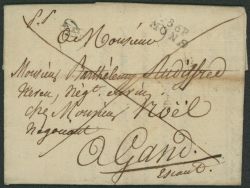 A Monsieur
Monsieur Barthelemy Audiffred
Neveu, Négt.
chez Monsieur Noël
Négociant
A Gand.
Escaut
86
MONS